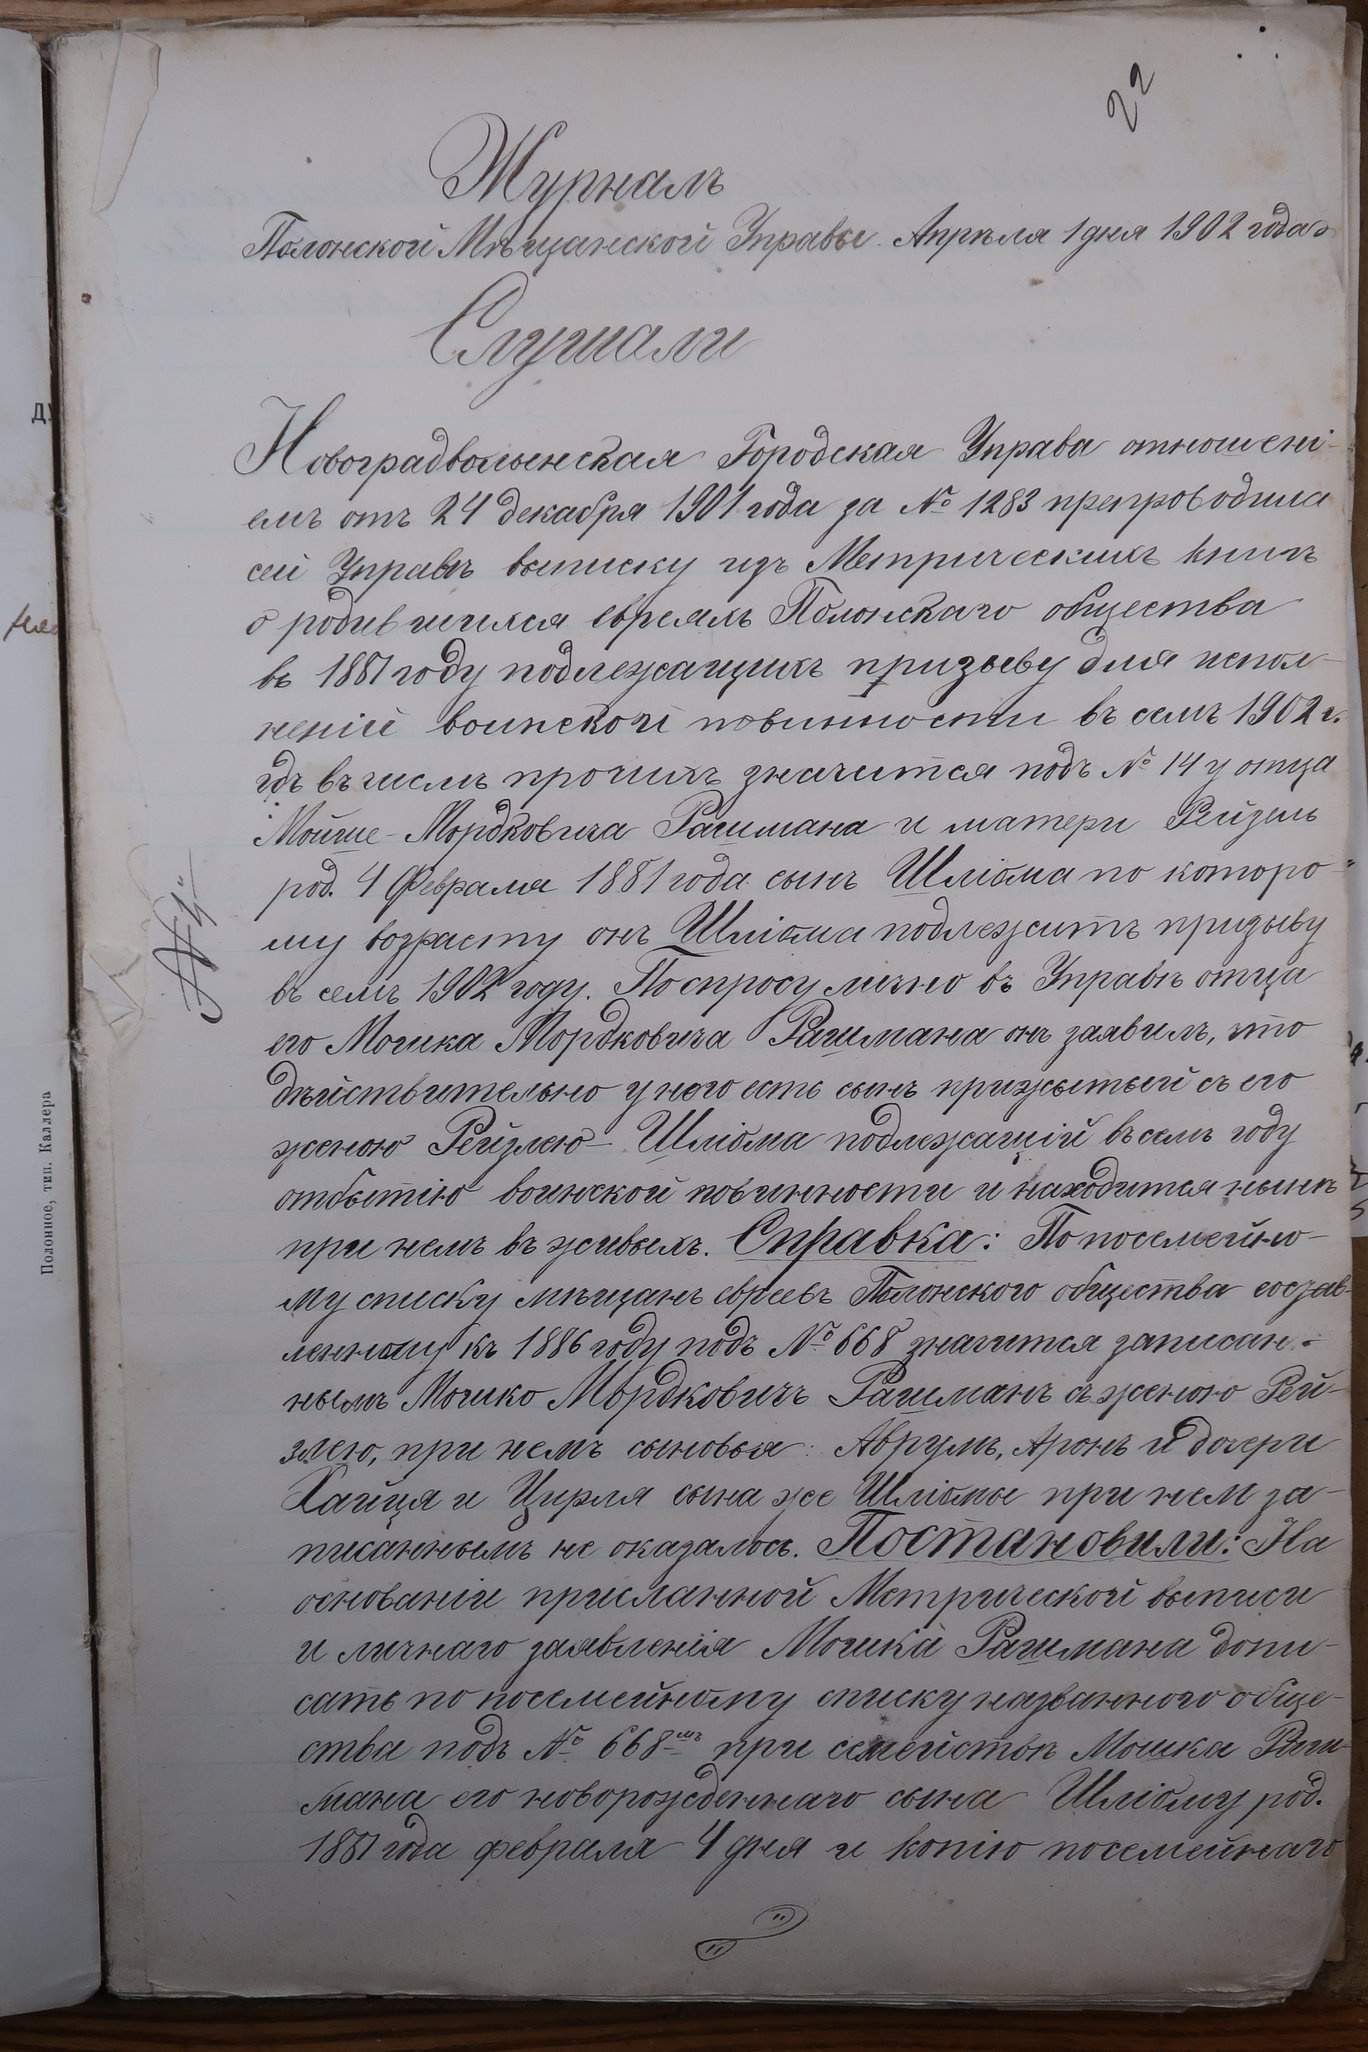 22
Журналъ
Полонской Мѣщанской Управы Апрѣля 1 дня 1902 года
Слушали
Новоградволынская Городская Управа отношені-
емъ отъ 24 декабря 1901 года за № 1283 препроводила
сей Управѣ выписку изъ Метрическихъ книгъ
о родившихся евреяхъ Полонскаго общества
въ 1881 году подлежащихъ призыву для испол-
неній воинской повинности въ семъ 1902 г.
гдѣ въ числѣ прочихъ значится подъ № 14 у отца
Мойше-Мордковича Рашмана и матери Рейзель
род. 4 Февраля 1881 года сынъ Шліома по которо-
му возрасту онъ Шліома подлежитъ призыву
въ семъ 1902 году. По спросу лично въ Управѣ отца
его Мошка Мордковича Рашмана онъ заявилъ, что
дѣйствительно у него есть сынъ прижытый съ его
женою Рейзлею Шліома подлежащій въ семъ году
отбытію воинской повинности и находится нынѣ
при немъ въ живыхъ. Справка: По посемейно-
му списку мѣщанъ евреевъ Полонского общества состав-
ленному къ 1886 году подъ № 668 значится записан-
нымъ Мошко Мордковичъ Рашманъ съ женою Рей-
злею, при немъ сыновья: Аврумъ, Аронъ и дочери
Хайця и Цирля сына же Шліомы при нем за-
писаннымъ не оказалось. Постановили: На
основаніи присланной Метрической выписи
и личнаго заявленія Мошка Рашмана допи-
сать по посемейному списку названного обще-
ства подъ № 668-мъ при семействѣ Мошка Раш-
мана его новорожденнаго сына Шліому род.
1881 года февраля 4 дня и копію посемейнаго
Полонное, тип. Каллера